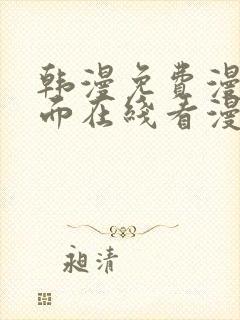 韩漫免费漫
而在线看漫
昶清